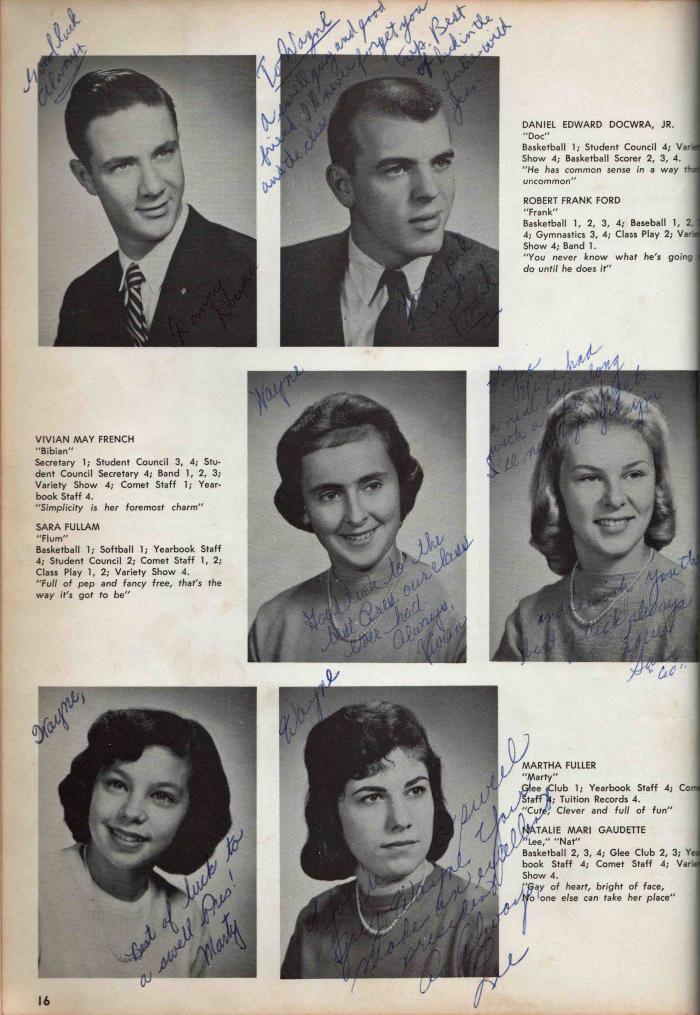 Good luck
Always
To Wayne
A swell guy and good
friend. I'll never forget you
and the class trip. Best
of luck in the
future with
Danny
Docwra
Your pal
always
Frank
DANIEL EDWARD DOCWRA, JR.
"Doc"
Basketball 1; Student Council 4; Varie
Show 4; Basketball Scorer 2, 3, 4.
"He has common sense in a way that
uncommon"
ROBERT FRANK FORD
"Frank"
Basketball 1, 2, 3, 4; Baseball 1, 2,
4; Gymnastics 3, 4; Class Play 2; Varie
Show 4; Band 1.
"You never know what he's going
do until he does it"
VIVIAN MAY FRENCH
"Bibian"
Secretary 1; Student Council 3, 4; Stu-
dent Council Secretary 4; Band 1, 2, 3;
Variety Show 4; Comet Staff 1; Year-
book Staff 4.
"Simplicity is her foremost charm"
SARA FULLAM
"Flum"
Basketball 1; Softball 1; Yearbook Staff
4; Student Council 2; Comet Staff 1, 2;
Class Play 1, 2; Variety Show 4.
"Full of pep and fancy free, that's the
way it's got to be"
Wayne
Good luck to the
best Pres. our class
ever had.
Always,
Vivian
Wayne
We've had
a real along
with a few fights
I'll never forget you
and I wish you the
best of luck always
Love
Sara
Wayne,
Best of luck to
a swell Pres!
Marty
Wayne
To a sweet
guy Wayne. You
make an excellent
president
Always
Lee
MARTHA FULLER
"Marty"
Glee Club 1; Yearbook Staff 4; Com
Staff 4; Tuition Records 4.
"Cute, Clever and full of fun"
NATALIE MARI GAUDETTE
"Lee," "Nat"
Basketball 2, 3, 4; Glee Club 2, 3; Yea
book Staff 4; Comet Staff 4; Varie
Show 4.
"Gay of heart, bright of face,
No one else can take her place"
16